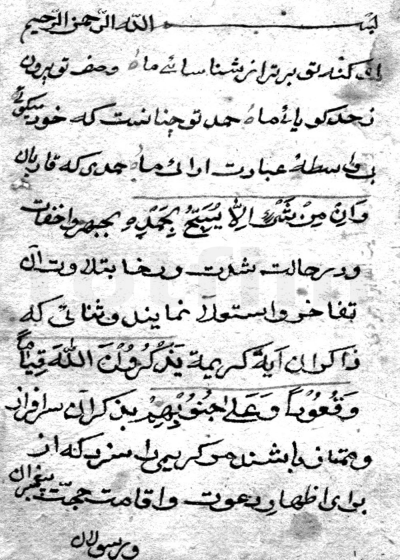 بسم الله الرّحمن الرّحیم
ای کنه تو برتر از شناسائی ما و وصف تو بیرون
ز حد کویائی ما حمد تو چنانست که خود میکوئی
بی واسطهٔ عبادت ارائی ما حمدی که قاریان
وَاِنْ مِنْ شَیْءٍ اِلّا یُسَبِّحُ بِحَمْدِهِ بجهر و اخفات
و در حالت شدت و رخا بتلاوت آن
تفاخر و استعلا نمایند و ثنائی که
ذاکران آیهٔ کریمهٔ یَذْکُرُونَ اللهَ قِیاماً
وَقُعُوداً وَعَلی جُنُوبِهِمْ بذکر آن سرافراز
و ممتاز باشند مر کریمی را سزد که از
برای اظهار دعوت و اقامت حجّت پیغمبران
و رسولان